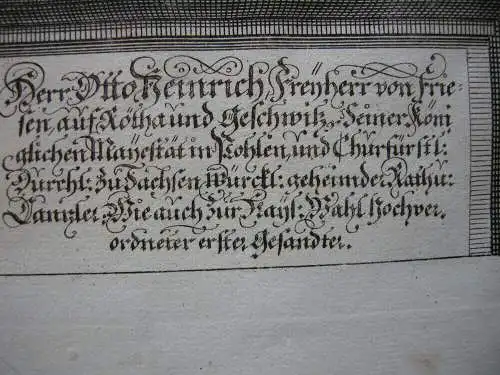 Herr Otto Heinrich Freÿherr von Frie-
sen, auf Rötha und Geschwitz, Seiner Köni
glichen Mayestät in Pohlen, und Churfürstl:
Durchl: zu Sachsen, Würckl: geheimder Rath u:
Cantzler, Wie auch zur Kaÿs: Wahl Hochver,
ordneter erster Gesandter.